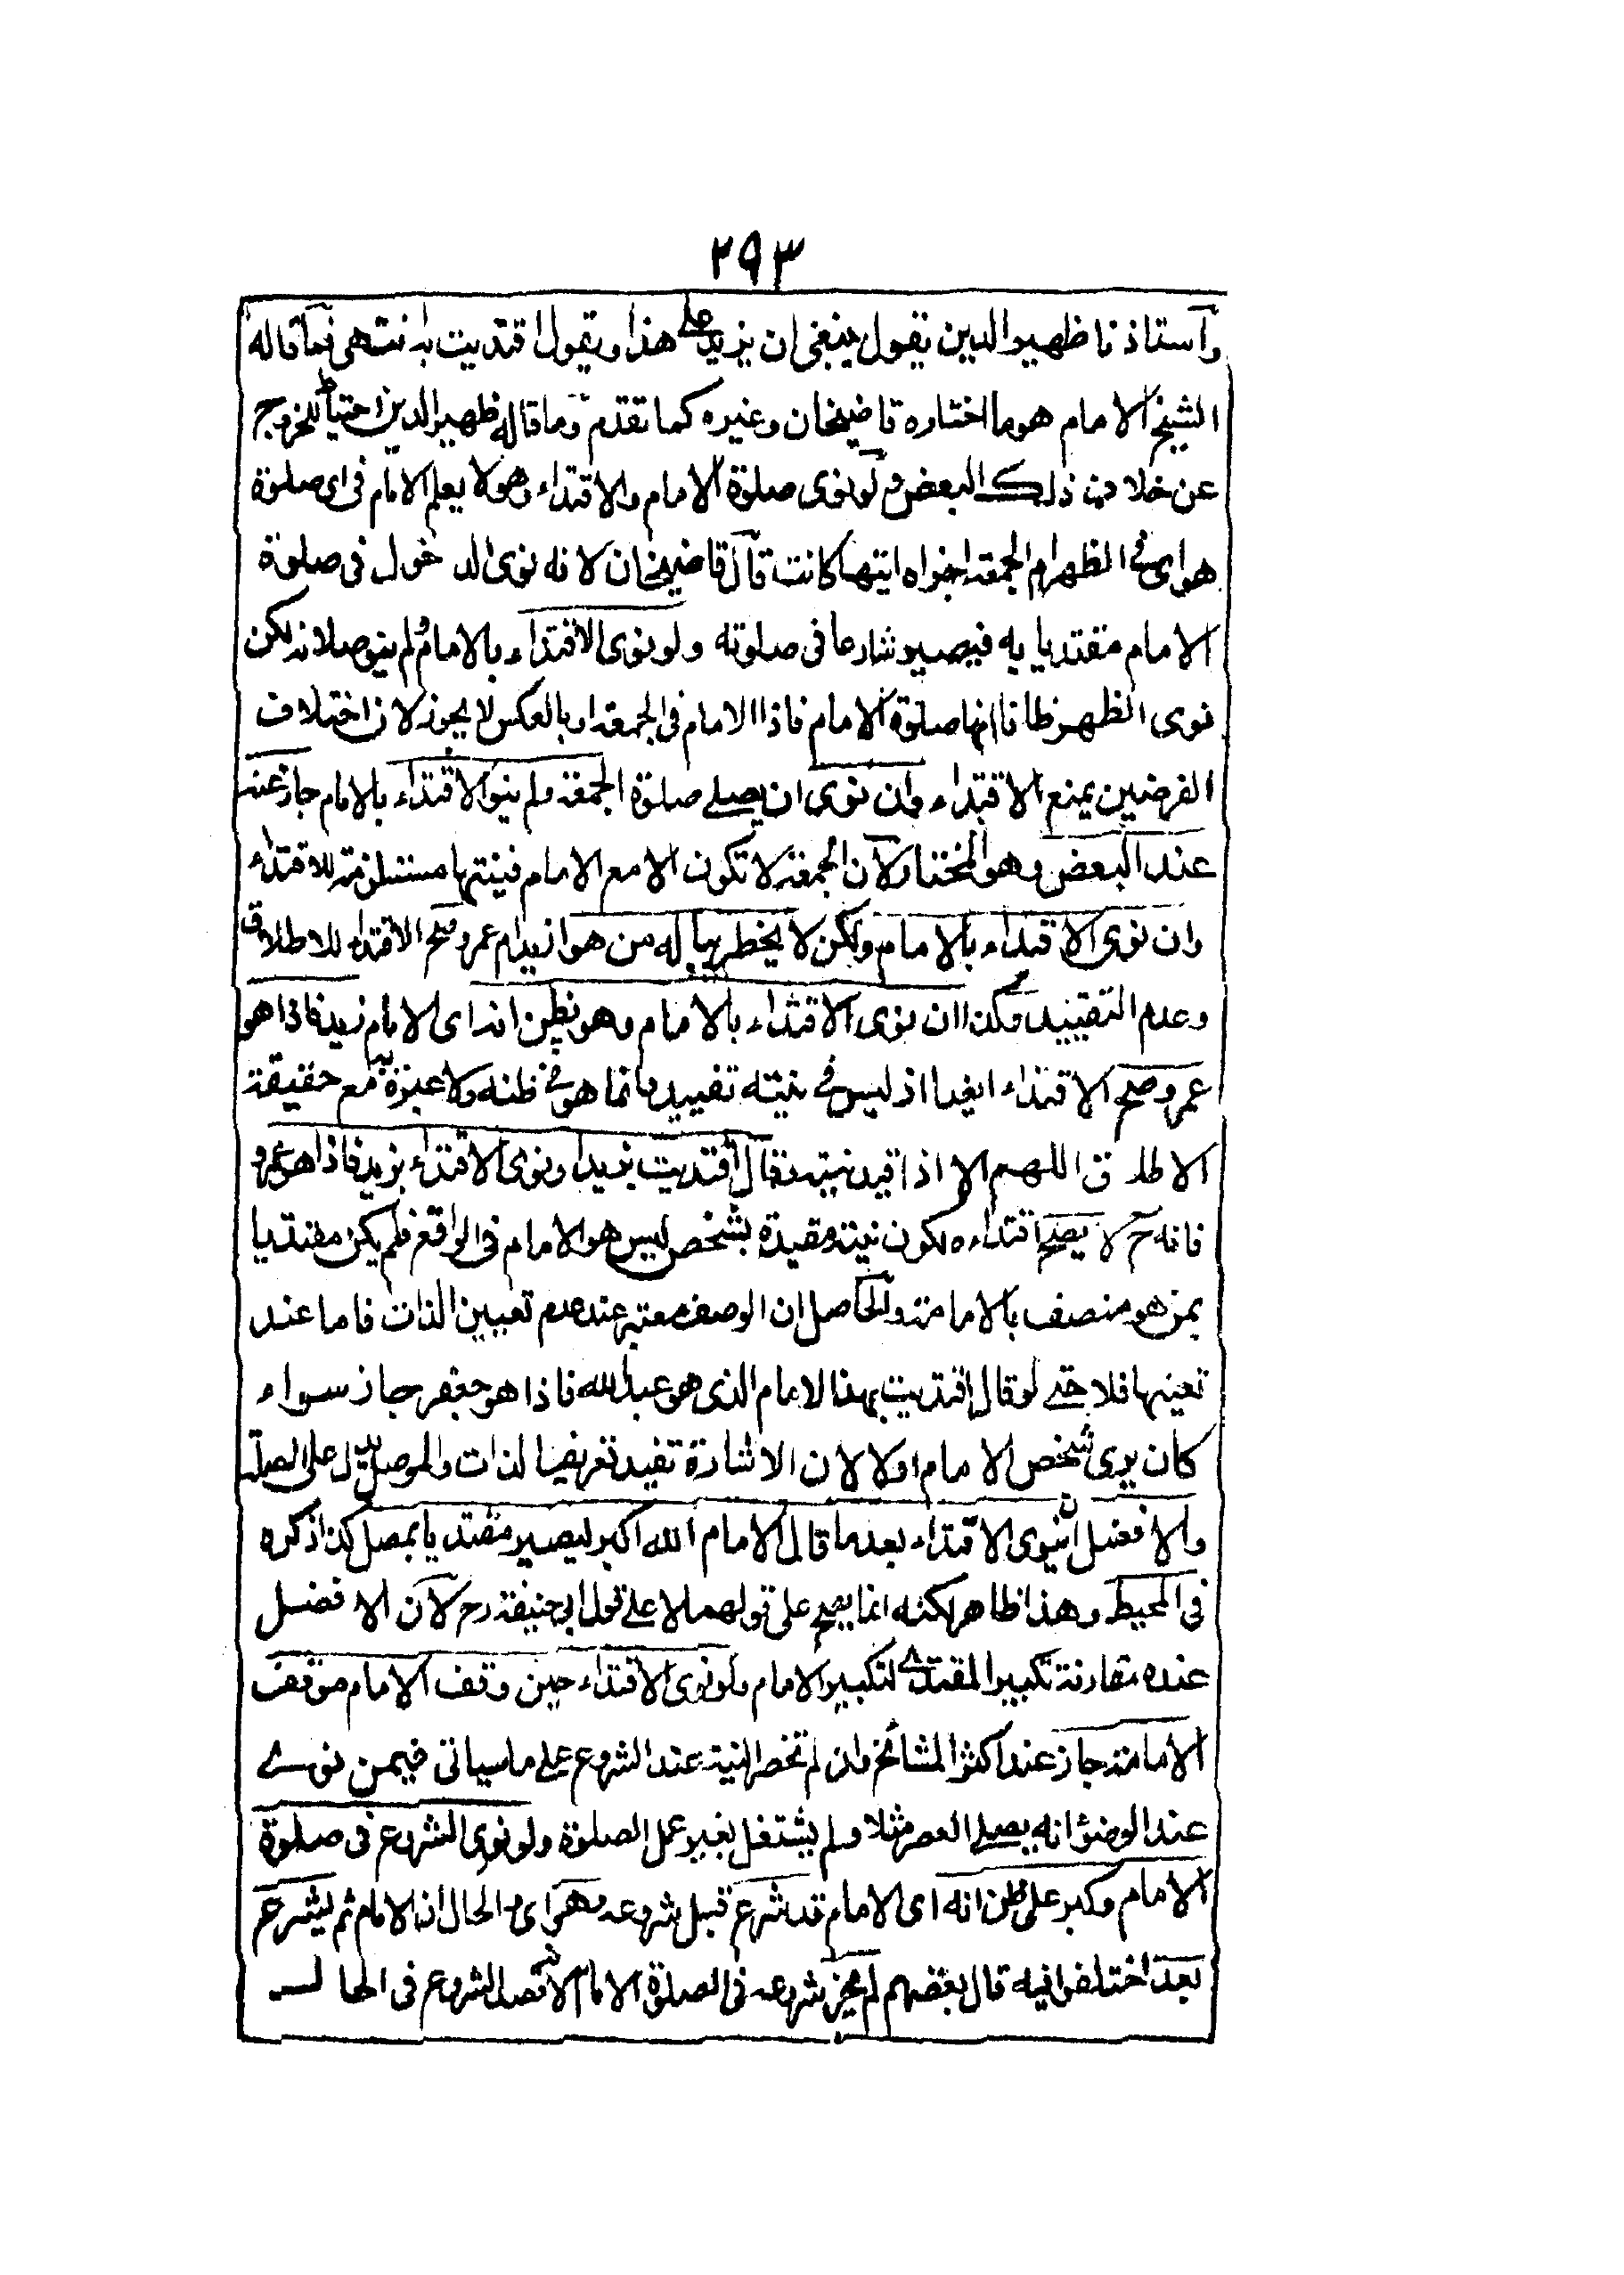 ٢٩٣
وأستاذنا ظهير الدين يقول ينبغي ان يزيد على هذا ويقول اقتديت به انتهى فما قاله
الشيخ الامام هو ما اختاره قاضيخان وغيره كما تقدم وما قاله ظهير الدين احتياط للخروج
عن خلاف ذلك البعض ولو نوى صلوة الامام والاقتداء وهو لا يعلم الامام فى اى صلوة
هو اى فى الظهر ام الجمعة اجزاه ايتها كانت قال قاضيخان لانه نوى الدخول فى صلوة
الامام مقتديا به فيصير شارعا فى صلوته ولو نوى الاقتداء بالامام ولم ينو صلاته لكن
نوى الظهر ظانا انها صلوة الامام فاذا الامام فى الجمعة او بالعكس لا يجوز لان اختلاف
الفرضين يمنع الاقتداء وان نوى ان يصلى صلوة الجمعة ولم ينو الاقتداء بالامام جاز عنه
عند البعض وهو المختار لان الجمعة لا تكون الا مع الامام فنيتها مستلزمة للاقتداء
وان نوى الاقتداء بالامام ولكن لا يخطر بباله من هو ازيد ام عمرو صح الاقتداء للاطلاق
وعدم التقييد وكذا ان نوى الاقتداء بالامام وهو يظن انه اى الامام زيد فاذا هو
عمرو صح الاقتداء ايضا اذ ليس فى نيته تقييد وانما هو فى ظنه ولا عبرة به مع حقيقة
الاطلاق اللهم الا اذا قيد نيته فقال اقتديت بزيد او نوى الاقتداء بزيد فاذا هو عمرو
فانه ح لا يصح اقتداءه لكون نيته مقيدة بشخص ليس هو الامام فى الواقع فلم يكن مقتديا
بمن هو متصف بالامامة والحاصل ان الوصف معتبر عند عدم تعيين الذات فاما عند
تعينها فلا حتى لو قال اقتديت بهذا الامام الذى هو عبد الله فاذا هو جعفر جاز سواء
كان يرى شخص الامام اولا لان الاشارة تفيد تعريف الذات والموصل يدل على الصلة
والافضل ان ينوى الاقتداء بعد ما قال الامام الله اكبر ليصير مقتديا بمصل كذا ذكره
فى المحيط وهذا ظاهر لكنه انما يصح على قولهما لا على قول ابى حنيفة رح لان الافضل
عنده مقارنة تكبير المقتدى لتكبير الامام ولو نوى الاقتداء حين وقف الامام موقف
الامامة جاز عند اكثر المشائخ وان لم تحضر النية عند الشروع على ما سياتى فيمن نوى
عند الوضؤ انه يصلى العصر مثلا ولم يشتغل بغير عمل الصلوة ولو نوى الشروع فى صلوة
الامام وكبر على ظن انه اى الامام قد شرع قبل شروعه وهو اى والحال ان الامام لم يشرع
بعد اختلفوا فيه قال بعضهم لم يجز شروعه فى الصلوة الامام لانه قصد الشروع فى الحال